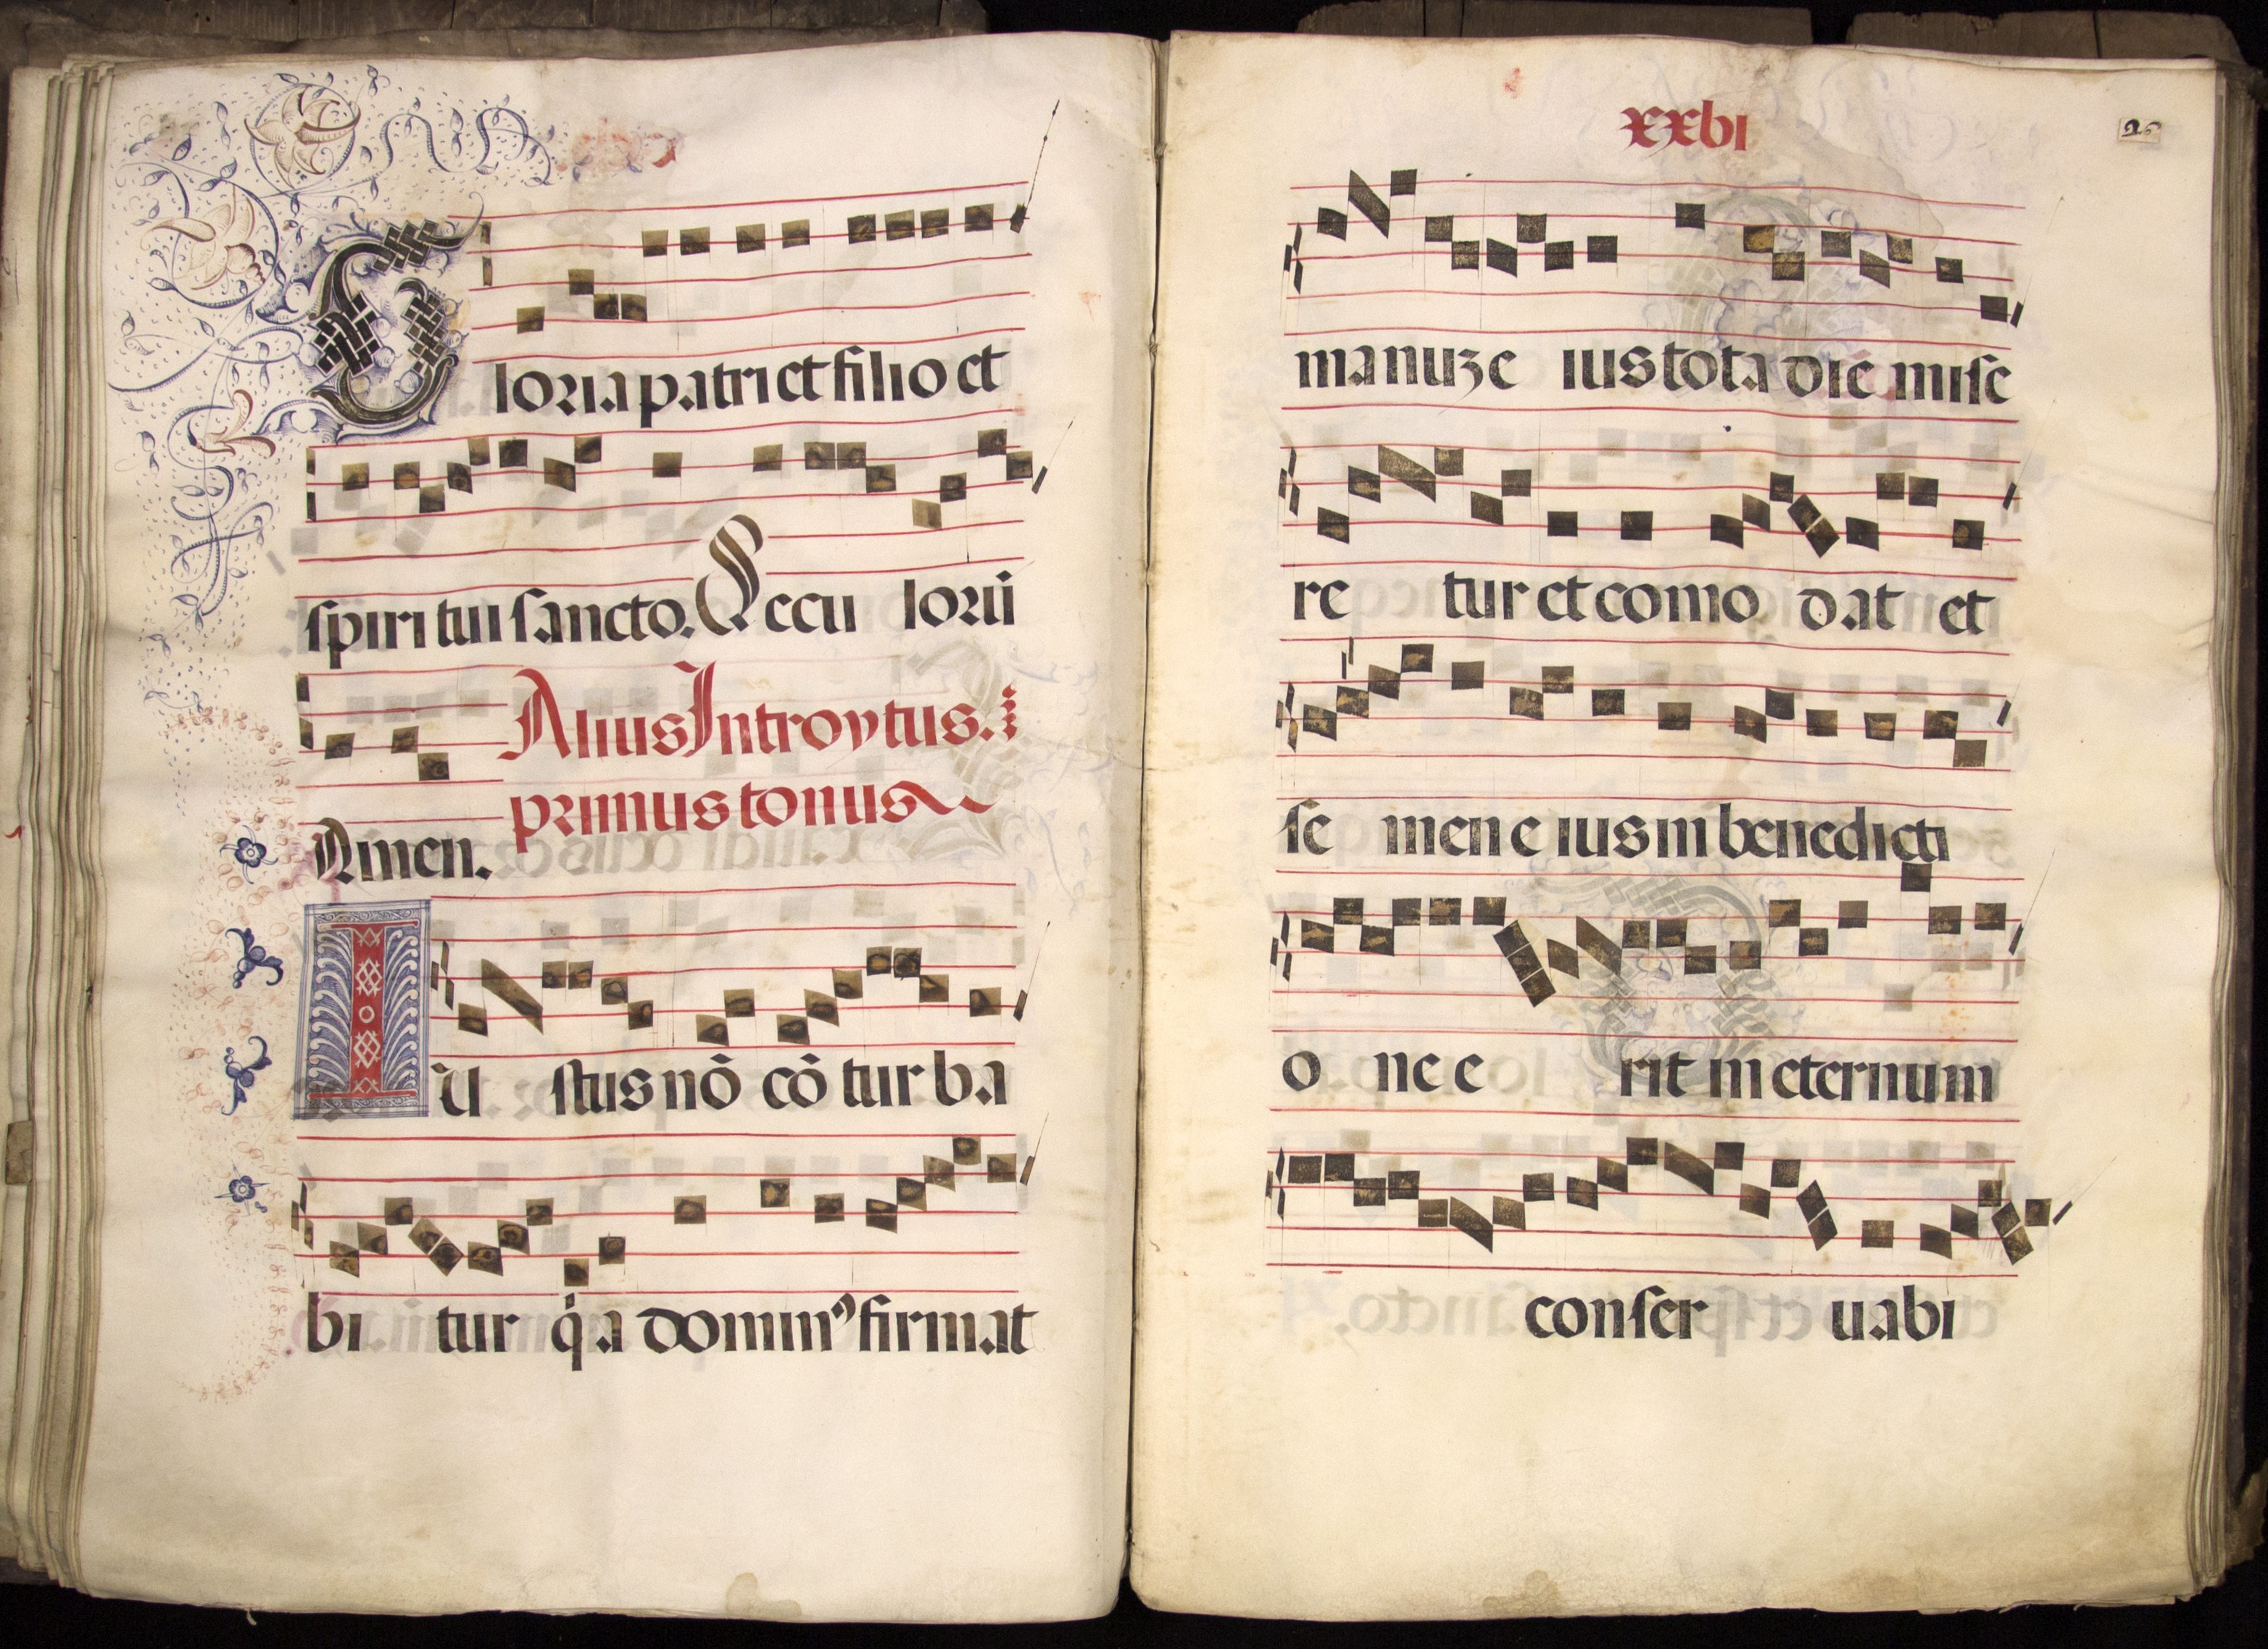 Gloria patri et filio et
spiritui sancto. Seculorū
Alius Introytus.
primus tonus
Amen.
Iustus nō cōturba
bitur q̇a domin⁹ firmat
xxbi
26
manuz eius tota die mise
retur et comodat et
semen eius in benedicti
one erit in eternum
conseruabi